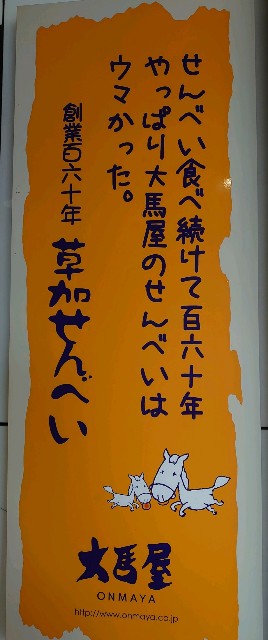 せんべい食べ続けて百六十年
やっぱり大馬屋のせんべいは
ウマかった。
創業百六十年
草加せんべい
大馬屋
ONMAYA
http://www.onmaya.co.jp